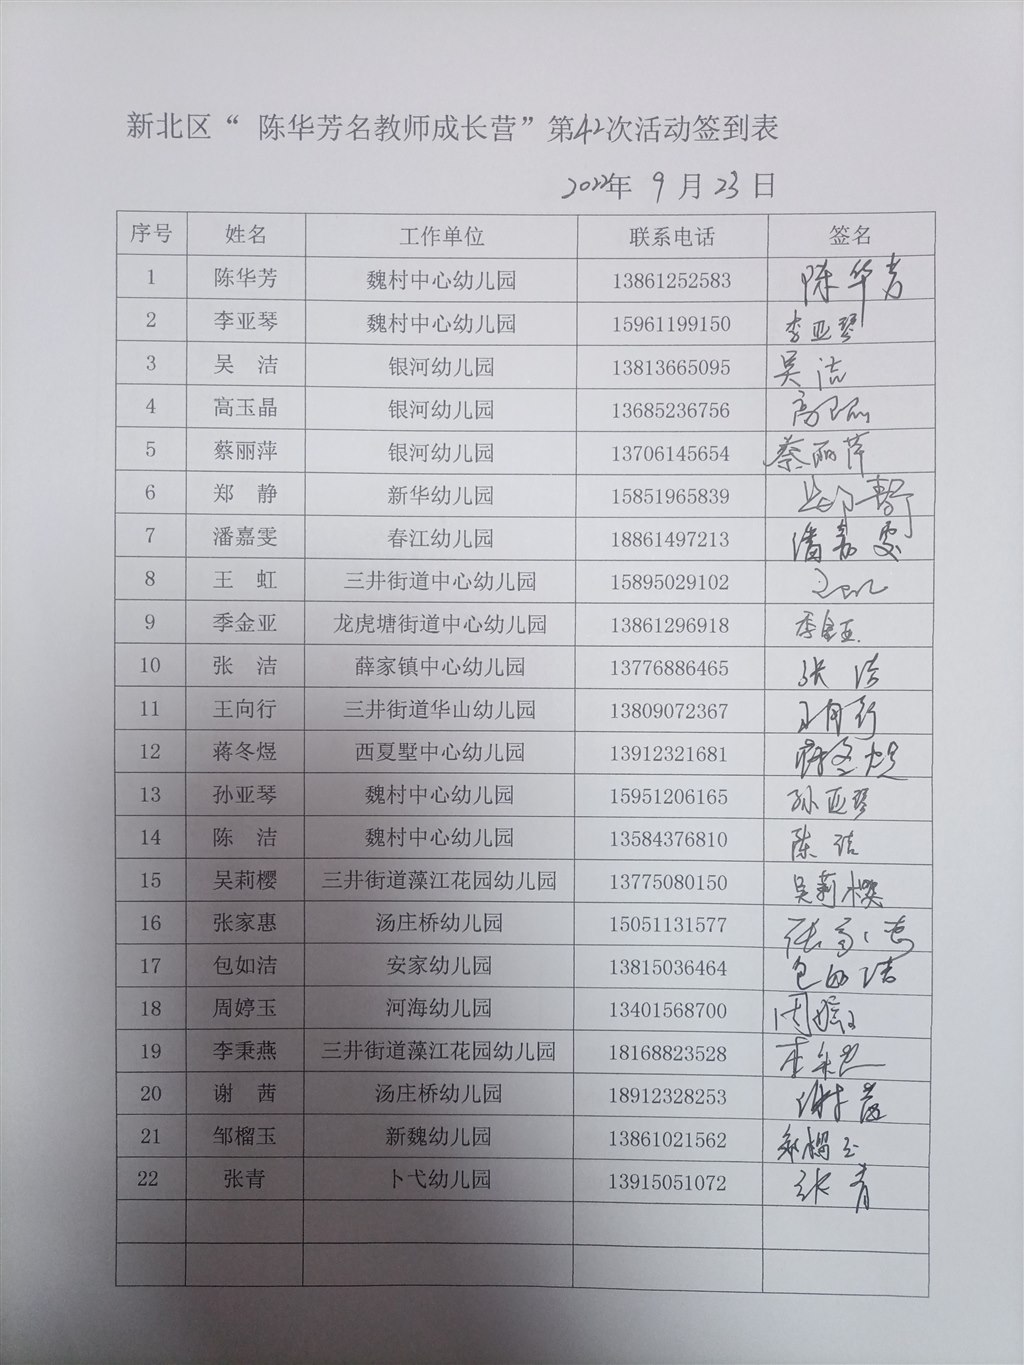 新北区“ 陈华芳名教师成长营”第42次活动签到表
2022年 9 月 23 日
序号 姓名 工作单位 联系电话 签名
1 陈华芳 魏村中心幼儿园 13861252583 陈华芳
2 李亚琴 魏村中心幼儿园 15961199150 李亚琴
3 吴 洁 银河幼儿园 13813665095 吴洁
4 高玉晶 银河幼儿园 13685236756 高玉晶
5 蔡丽萍 银河幼儿园 13706145654 蔡丽萍
6 郑 静 新华幼儿园 15851965839 郑静
7 潘嘉雯 春江幼儿园 18861497213 潘嘉雯
8 王 虹 三井街道中心幼儿园 15895029102 王虹
9 季金亚 龙虎塘街道中心幼儿园 13861296918 季金亚
10 张 洁 薛家镇中心幼儿园 13776886465 张洁
11 王向行 三井街道华山幼儿园 13809072367 王向行
12 蒋冬煜 西夏墅中心幼儿园 13912321681 蒋冬煜
13 孙亚琴 魏村中心幼儿园 15951206165 孙亚琴
14 陈 洁 魏村中心幼儿园 13584376810 陈洁
15 吴莉樱 三井街道藻江花园幼儿园 13775080150 吴莉樱
16 张家惠 汤庄桥幼儿园 15051131577 张家惠
17 包如洁 安家幼儿园 13815036464 包如洁
18 周婷玉 河海幼儿园 13401568700 周婷玉
19 李秉燕 三井街道藻江花园幼儿园 18168823528 李秉燕
20 谢 茜 汤庄桥幼儿园 18912328253 谢茜
21 邹榴玉 新魏幼儿园 13861021562 邹榴玉
22 张青 卜弋幼儿园 13915051072 张青